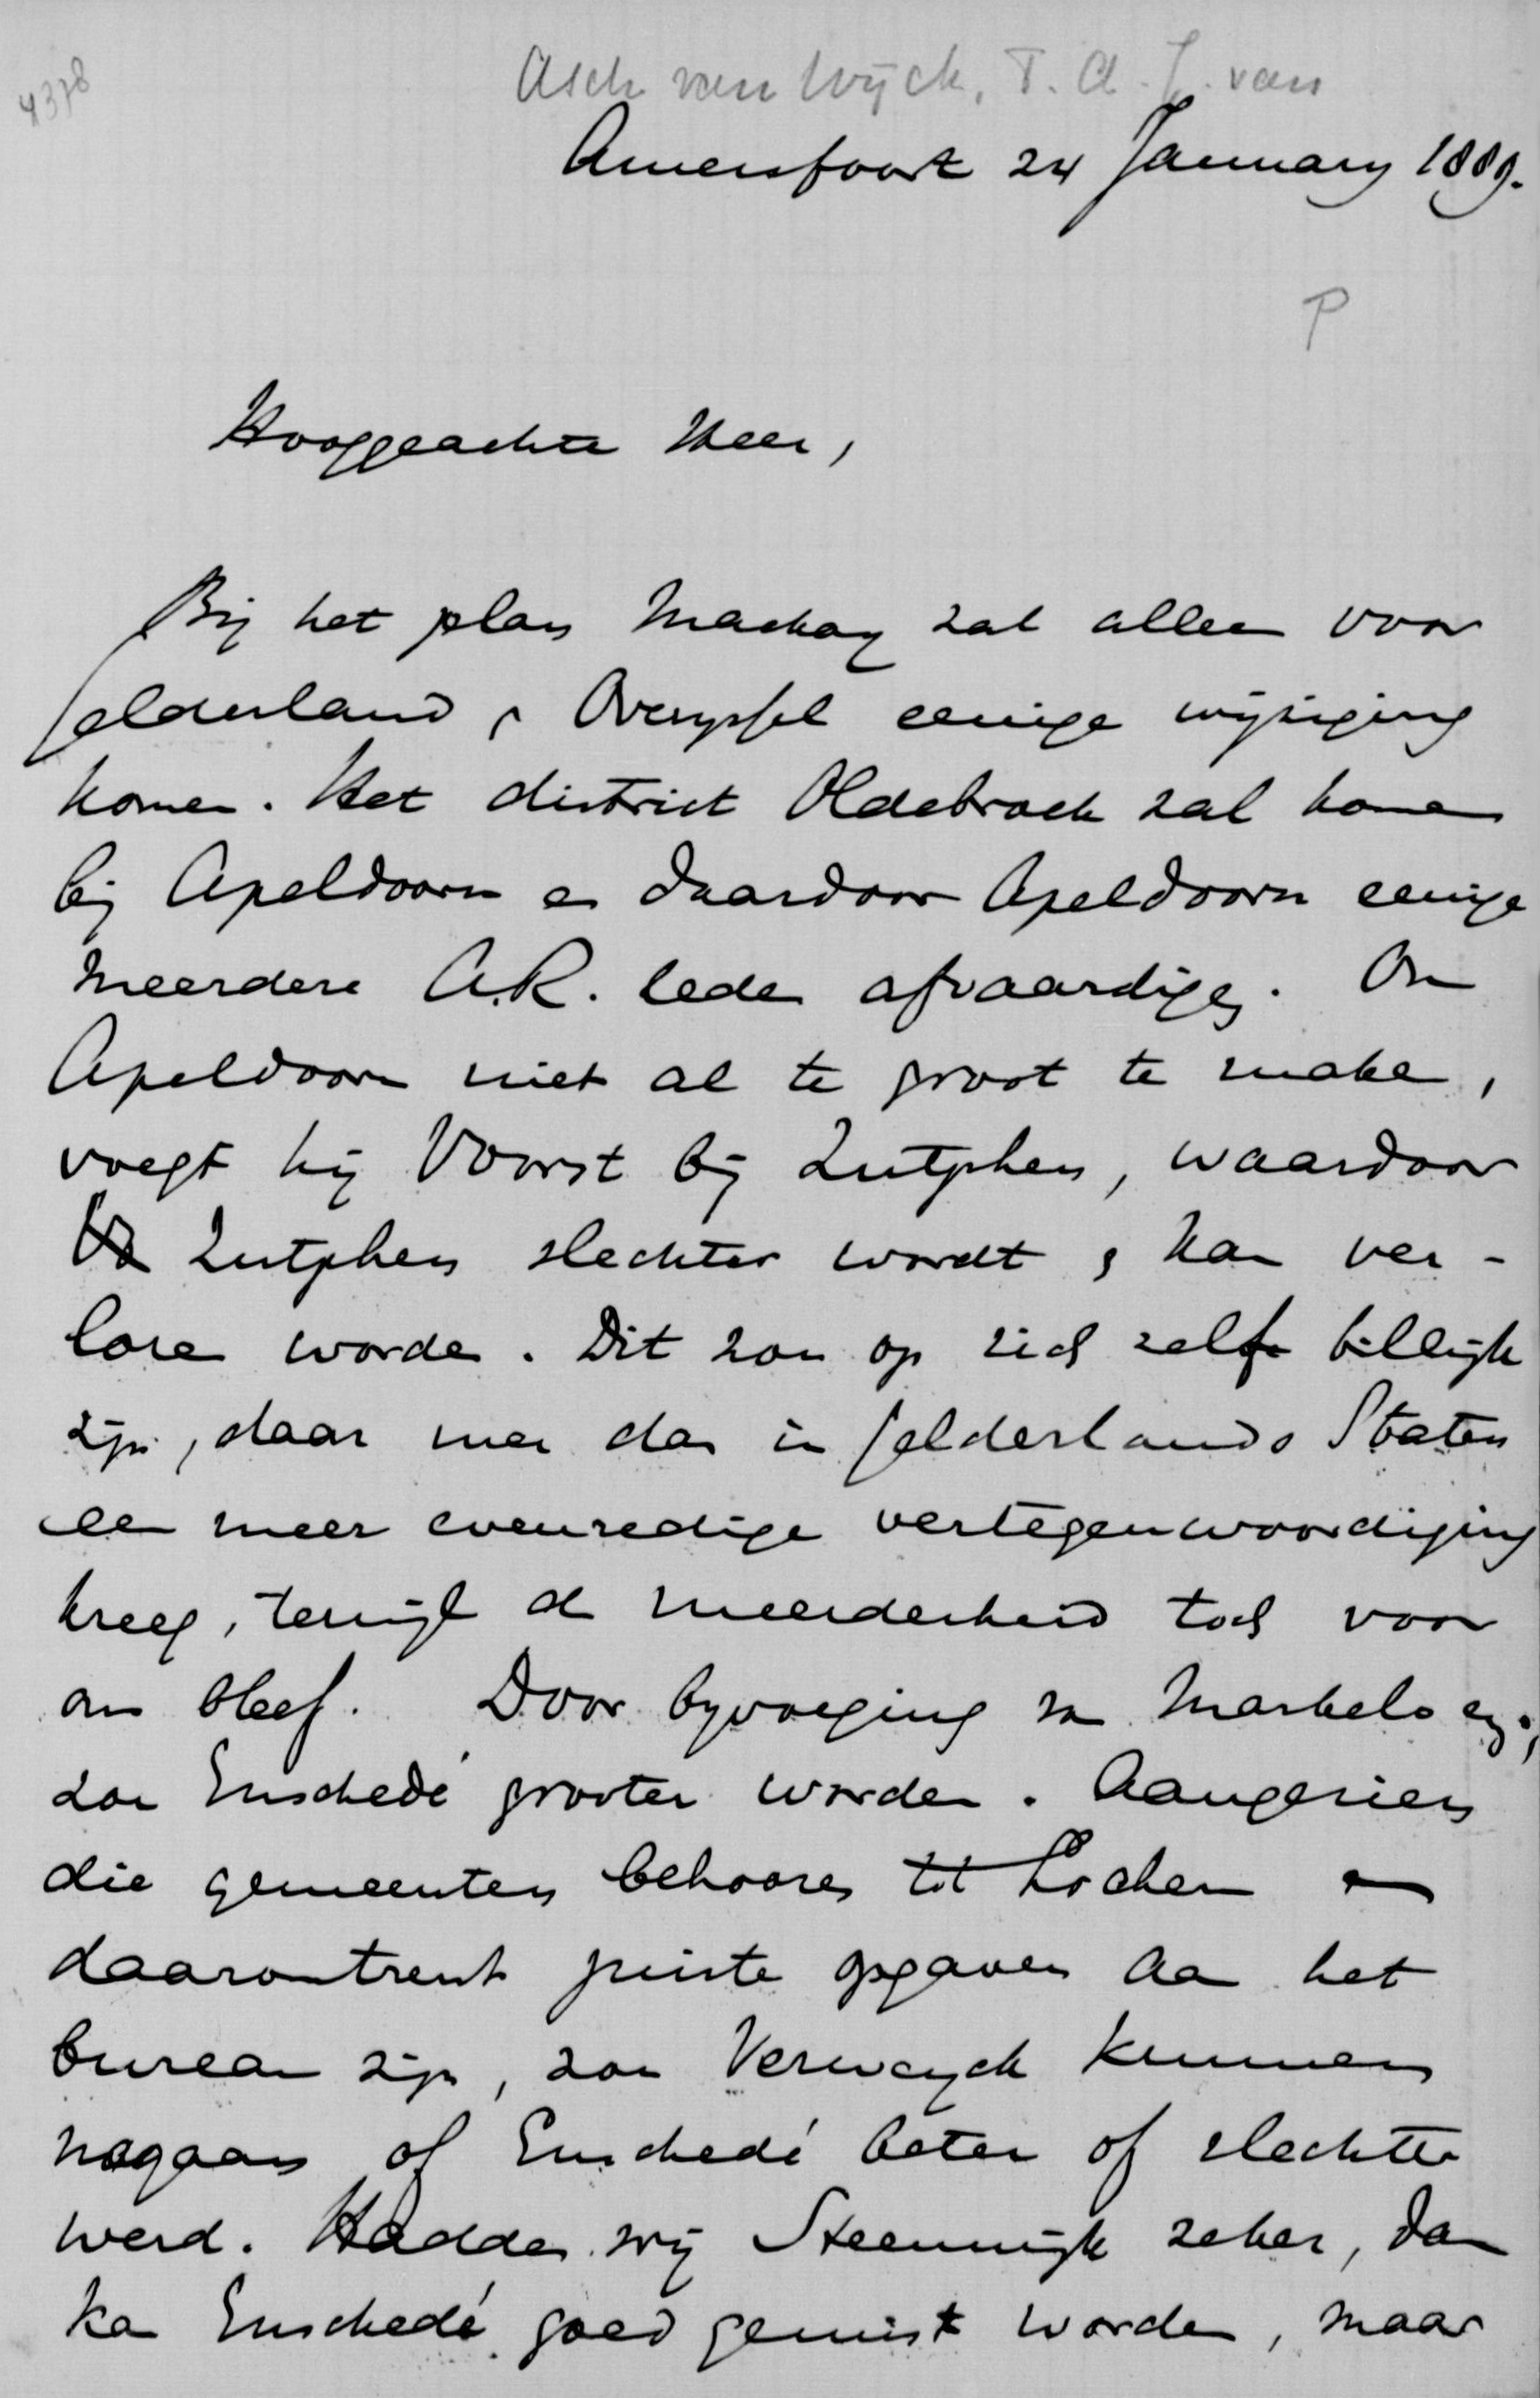 4378
Asch van Wijck, T. A. J. van
Amersfoort 24 January 1889.
P
Hooggeachte Heer,
Bij het plan Mackay zal alleen voor
Gelderland & Overyssel eenige wijziging
komen. Het district Oldebroek zal komen
bij Apeldoorn en daardoor Apeldoorn eenige
meerdere A.R. leden afvaardigen. Om
Apeldoorn niet al te groot te maken,
voegt hij Voorst bij Zutphen, waardoor
Zutphen slechter wordt & kan ver-
loren worden. Dit zou op zich zelf billijk
zijn, daar men dan in Gelderlands Staten
een meer evenredige vertegenwoordiging
kreeg, terwijl de meerderheid toch voor
ons bleef. Door byvoeging van Markelo en,
zou Enschedé grooter worden. Aangezien
die gemeenten behooren tot Lochem en
daaromtrent juiste opgaven aan het
bureau zijn, zou Verweyck kunnen
nagaan of Enschedé beter of slechter
werd. Hadden wij Steenwijk zeker, dan
kan Enschedé goed gemist worden, maar